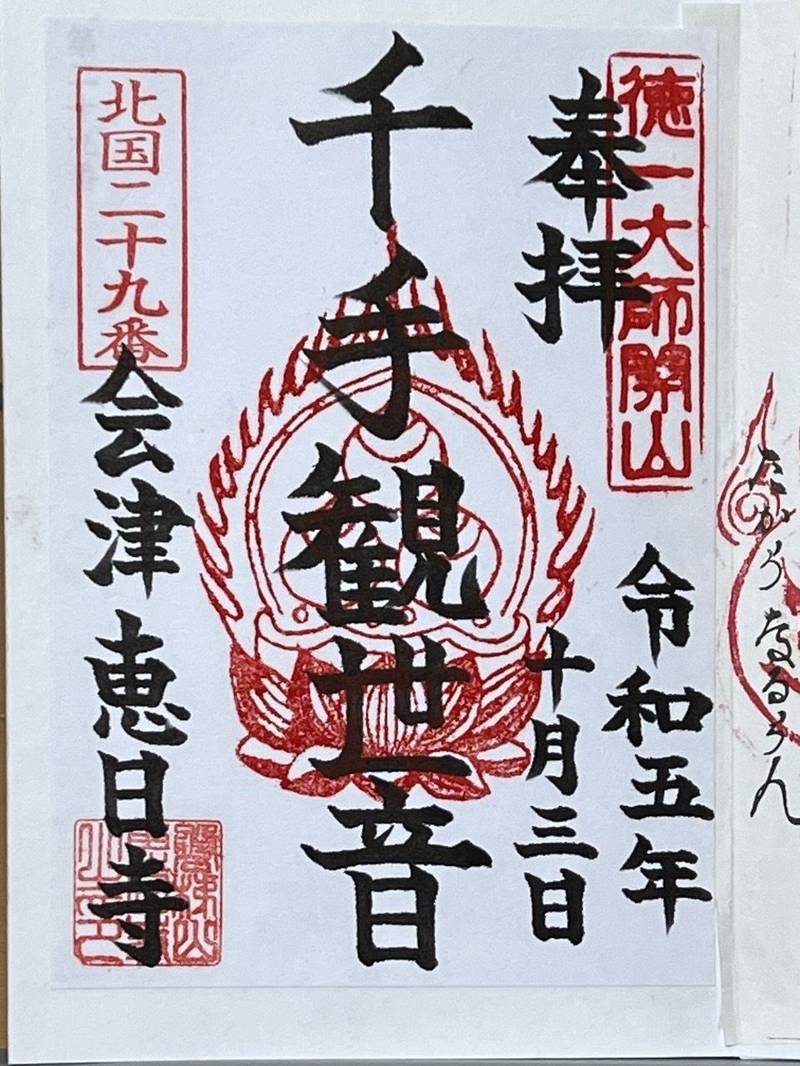 徳一大師開山
奉拝
令和五年
十月三日
千手観世音
北国二十九番
会津 恵日寺